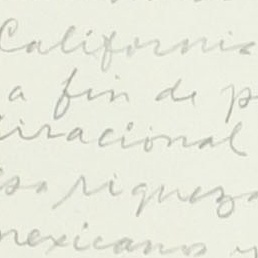 California
a fin de p
irracional
sa riqueza
mexicanos y